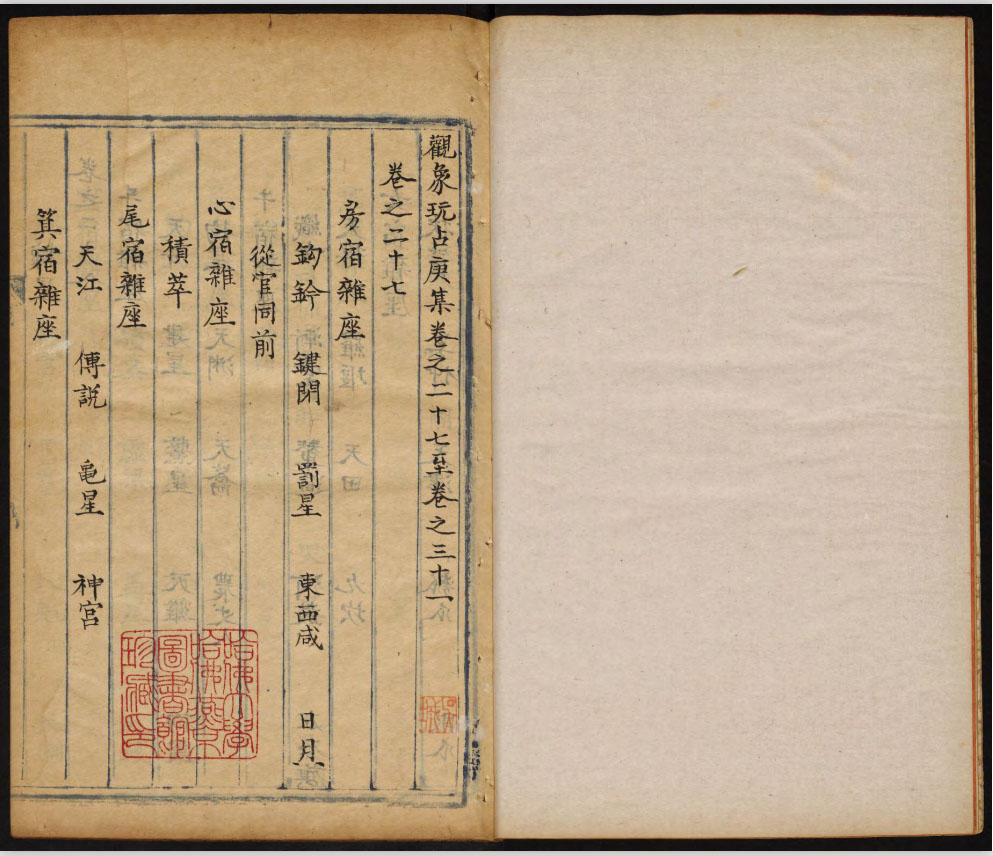 觀象玩占庚集卷之二十七至卷之三十一
卷之二十七
房宿雜座
鈎鈐 鍵閉 罰星 東西咸 日月
從官同前
心宿雜座
積萃
尾宿雜座
天江 傅說 龜星 神宮
箕宿雜座
哈佛大學
哈佛燕京
圖書館
珍藏印